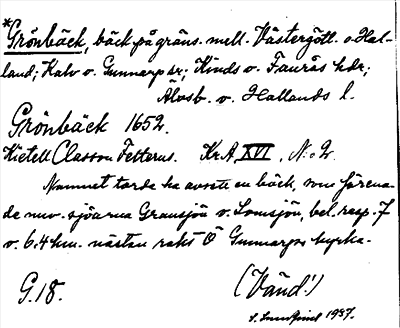 *Grönbäck, bäck på gräns. mell. Västergötl. o. Hal-
land; Kalv o. Gunnarp sr; Kinds o. Faurås hdr;
Älvsb. o. Hallands l.
Grönbäck 1652.
Kietell Classon Fetterus. Kr.A. XVI, N:o 2.
Namnet torde ha avsett en bäck, som förena-
de nuv. sjöarna Gransjön o. Lomsjön, bel. resp. 7
o. 6.4 km. nästan rakt Ö Gunnarps kyrka.
G. 18.
(Vänd!)
1937.